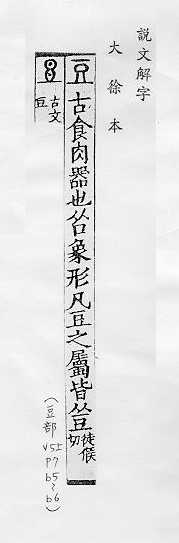 說文解字
大徐本
豆 古食肉器也从口象形凡豆之屬皆从豆 徒候切
古文豆
(豆部 V5上 P7 b5~b6)